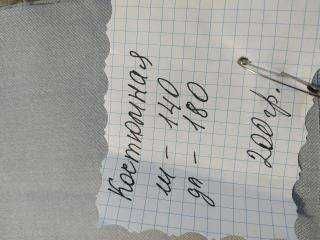 Костюмная
ш – 140
дл – 180
200 гр.